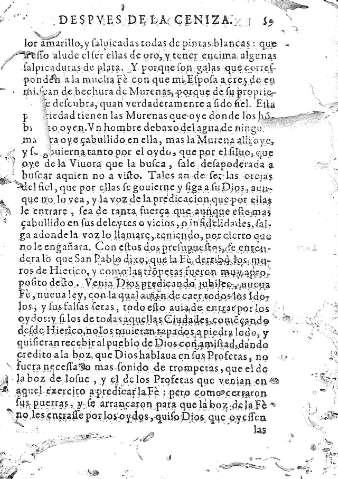 DESPVES DE LA CENIZA. 59
lor amarillo, y salpicadas todas de pintas blancas: que
esso alude el ser ellas de oro, y tener encima algunas
salpicaduras de plata. Y porque son galas que corres-
ponden a la mucha Fè con que mi Esposa a cres de en
mi, sean de hechura de Murenas, porque de su proprie-
se descubra, quan verdaderamente a sido fiel. Esta
piedad tienen las Murenas que oye donde los hó-
b oyen. Vn hombre debaxo del agua de ningu
ma ra oye çabullido en ella, mas la Murena alli oye,
y se gouierna tanto por el oydo, que por el siluo, que
oye de la Viuora que la busca, sale desapoderada a
buscar a quien no a visto. Tales an de ser las orejas
del fiel, que por ellas se gouierne y siga a su Dios, aun-
que no lo vea, y la voz de la predicacion que por ellas
le entrare, sea de tanta fuerça que aunque estè mas
çabullido en sus deleytes o vicios, o infidelidades, sal-
ga adonde la voz lo llamare, teniendo por cierto que
no le engañara. Con estos dos presupuestos, se enten-
dera lo que San Pablo dixo, que la Fè derribò los mu-
ros de Hierico, y como las trōpetas fueron muy a pro-
posito desto. Venia Dios predicando jubileo, nueua
Fè, nueua ley, con la qual auian de caer todos los Ido-
los, y sus falsas setas, todo esto auia de entrar por los
oydos: y si los de todas aquellas Ciudades començando
desde Hierico, no los tuuieran tapados a piedra lodo, y
quisieran recebir al pueblo de Dios con amistad, dando
credito a la boz, que Dios hablaua en sus Profetas, no
fuera necessario mas sonido de trompetas, que el de
la boz de Iosue, y el de los Profetas que venian en
aquel exercito a predicar la Fè: pero como cerraron
sus puertas, y se arrancaron para que la boz de la Fè
no les entrasse por los oydos, quiso Dios que oyessen
las